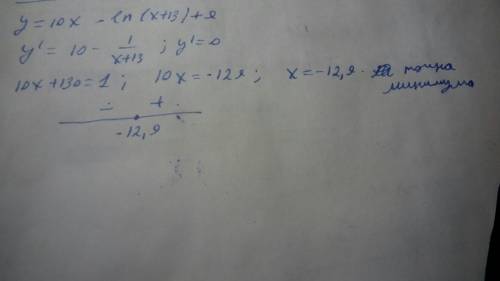 y = 10x - ln(x+13) + 9
y' = 10 - 1/(x+13) ; y' = 0
10x + 130 = 1 ; 10x = -129 ; x = -12,9 точка
минимума
- +
-12,9